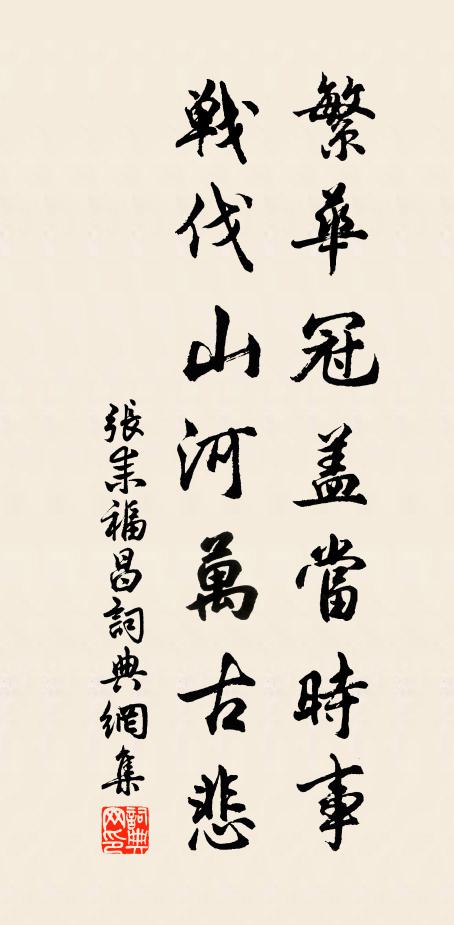 繁華冠盖當時事
戰伐山河萬古悲
張耒福昌詞典網集
詞典網印